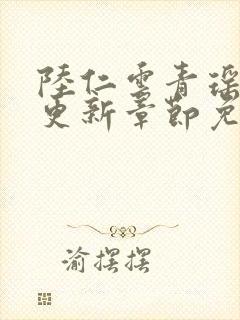 陸仁雲青瑶
更新章節免
渝摆摆